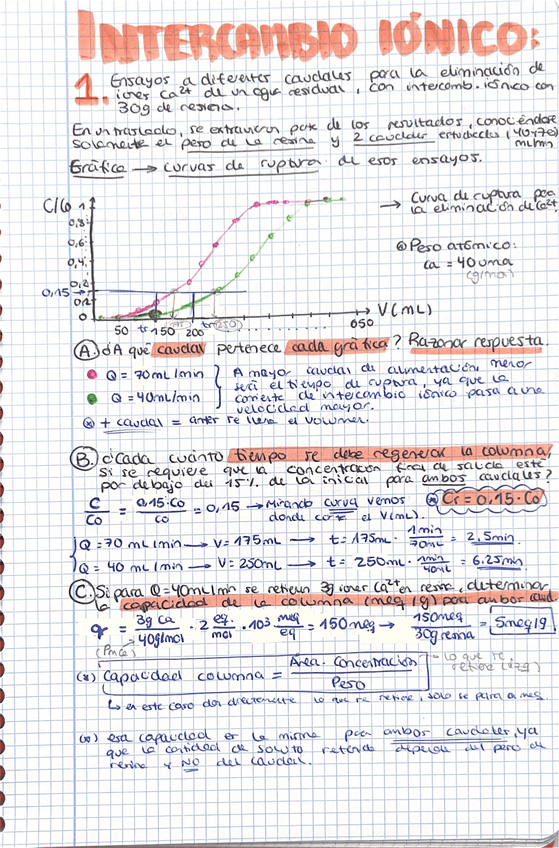 INTERCAMBIO IÓNICO:
1. Ensayos a diferentes caudales para la eliminación de
iones Ca²⁺ de un agua residual, con intercamb. iónico con
30g de resina.
En un traslado, se extravían parte de los resultados, conociéndose
solamente el peso de la resina y 2 caudales estudiados (40 y 70)
mL/min
Gráfica → curvas de ruptura de esos ensayos.
C/Co
1
0,8
0,6
0,4
0,2
0,15
0
50 150 200 650 V(mL)
tr (175) tr (250)
→ Curva de ruptura para
la eliminación de Ca²⁺
Peso atómico:
Ca = 40 uma
(g/mol)
A. ¿A qué caudal pertenece cada gráfica? Razonar respuesta.
Q = 70 mL/min
Q = 40 mL/min
A mayor caudal de alimentación, menor
será el tiempo de ruptura, ya que la
corriente de intercambio iónico pasa a una
velocidad mayor.
+ caudal = antes se llena el volumen.
B. ¿Cada cuánto tiempo se debe regenerar la columna,
si se requiere que la concentración final de salida esté
por debajo del 15% de la inicial para ambos caudales?
C/Co = 0,15·Co/Co = 0,15 → Mirando curva vemos
donde corte el V(mL).
Cr = 0,15·Co
Q = 70 mL/min → V = 175mL → t = 175mL · 1min/70mL = 2,5min.
Q = 40 mL/min → V = 250mL → t = 250mL · 1min/40mL = 6,25min.
C. Si para Q = 40mL/min se retienen 3g iones Ca²⁺ en resina, determinar
la capacidad de la columna (meq/g) para ambos caud.
q = 3g Ca/40g/mol · 2 eq./mol · 10³ meq/eq = 150 meq → 150meq/30g resina = 5meq/g.
(Pm Ca)
(*) Capacidad columna = Área · Concentración/Peso
lo que se
retiene
↳ en este caso dan directamente lo que se retiene, solo se pasa a meq.
(*) esa capacidad es la misma para ambos caudales, ya
que la cantidad de soluto retenido depende del peso de
resina y NO del caudal.